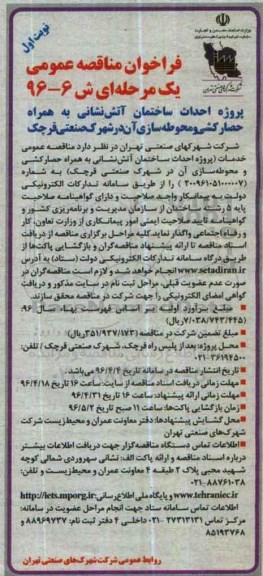 نوبت اول
فراخوان مناقصه عمومی
یک مرحله‌ای ش ۶-۹۶
پروژه احداث ساختمان آتش‌نشانی به همراه
حصارکشی و محوطه‌سازی آن در شهرک صنعتی قرچک
شرکت شهرکهای صنعتی تهران در نظر دارد مناقصه عمومی
خدمات (پروژه احداث ساختمان آتش‌نشانی به همراه حصارکشی
و محوطه‌سازی آن در شهرک صنعتی قرچک) به شماره
(۲۰۰۹۶۱۰۵۱۰۰۰۰۰۷) را از طریق سامانه تدارکات الکترونیکی
دولت به پیمانکار واجد صلاحیت و دارای گواهینامه صلاحیت
پایه ۵ رشته ساختمان از سازمان مدیریت و برنامه‌ریزی کشور و
گواهینامه تایید صلاحیت ایمنی امور پیمانکاری از وزارت تعاون، کار
و رفاه اجتماعی واگذار نماید. کلیه مراحل برگزاری مناقصه از دریافت
اسناد مناقصه تا ارائه پیشنهاد مناقصه‌گران و بازگشایی پاکت‌ها از
طریق درگاه سامانه تدارکات الکترونیکی دولت (ستاد) به آدرس
www.setadiran.ir انجام خواهد شد و لازم است مناقصه‌گران در
صورت عدم عضویت قبلی، مراحل ثبت نام در سایت مذکور و دریافت
گواهی امضای الکترونیکی را جهت شرکت در مناقصه محقق سازند.
مبلغ برآورد اولیه بر اساس فهرست بهاء سال ۹۶:
(۷/۰۳۸/۷۴۳/۴۴۵ ریال)
• مبلغ تضمین شرکت در مناقصه (۳۵۱/۹۳۷/۱۷۳ ریال)
• محل پروژه: بعد از پلیس راه قرچک، شهرک صنعتی قرچک / تلفن:
۰۲۱-۳۶۱۹۴۵۰۰
• تاریخ انتشار مناقصه در سامانه تاریخ ۹۶/۴/۴ می‌باشد.
• مهلت زمانی دریافت اسناد مناقصه از سایت: ساعت ۱۶ تاریخ ۹۶/۴/۱۸
• مهلت زمانی ارائه پیشنهاد: ساعت ۱۶ تاریخ ۹۶/۴/۳۱
• زمان بازگشایی پاکت‌ها: ساعت ۱۱ صبح تاریخ ۹۶/۵/۲
محل گشایش پیشنهادها: دفتر معاونت عمران و محیط زیست شرکت
شهرک‌های صنعتی تهران
• اطلاعات تماس دستگاه مناقصه‌گزار جهت دریافت اطلاعات بیشتر
درباره اسناد مناقصه و ارائه پاکت الف: نشانی سهروردی شمالی کوچه
شهید محبی پلاک ۲ طبقه ۴ معاونت عمران و محیط زیست و تلفن:
۰۲۱-۸۸۷۶۱۰۳۸
www.tehraniec.ir و پایگاه ملی اطلاع‌رسانی: http://iets.mporg.ir
اطلاعات تماس سامانه ستاد جهت انجام مراحل عضویت در سامانه:
مرکز تماس ۲۷۳۱۳۱۳۱-۰۲۱ داخلی ۲ دفتر ثبت نام: ۸۸۹۶۹۷۳۷ و
۸۵۱۹۳۷۶۸
روابط عمومی شرکت شهرک‌های صنعتی تهران